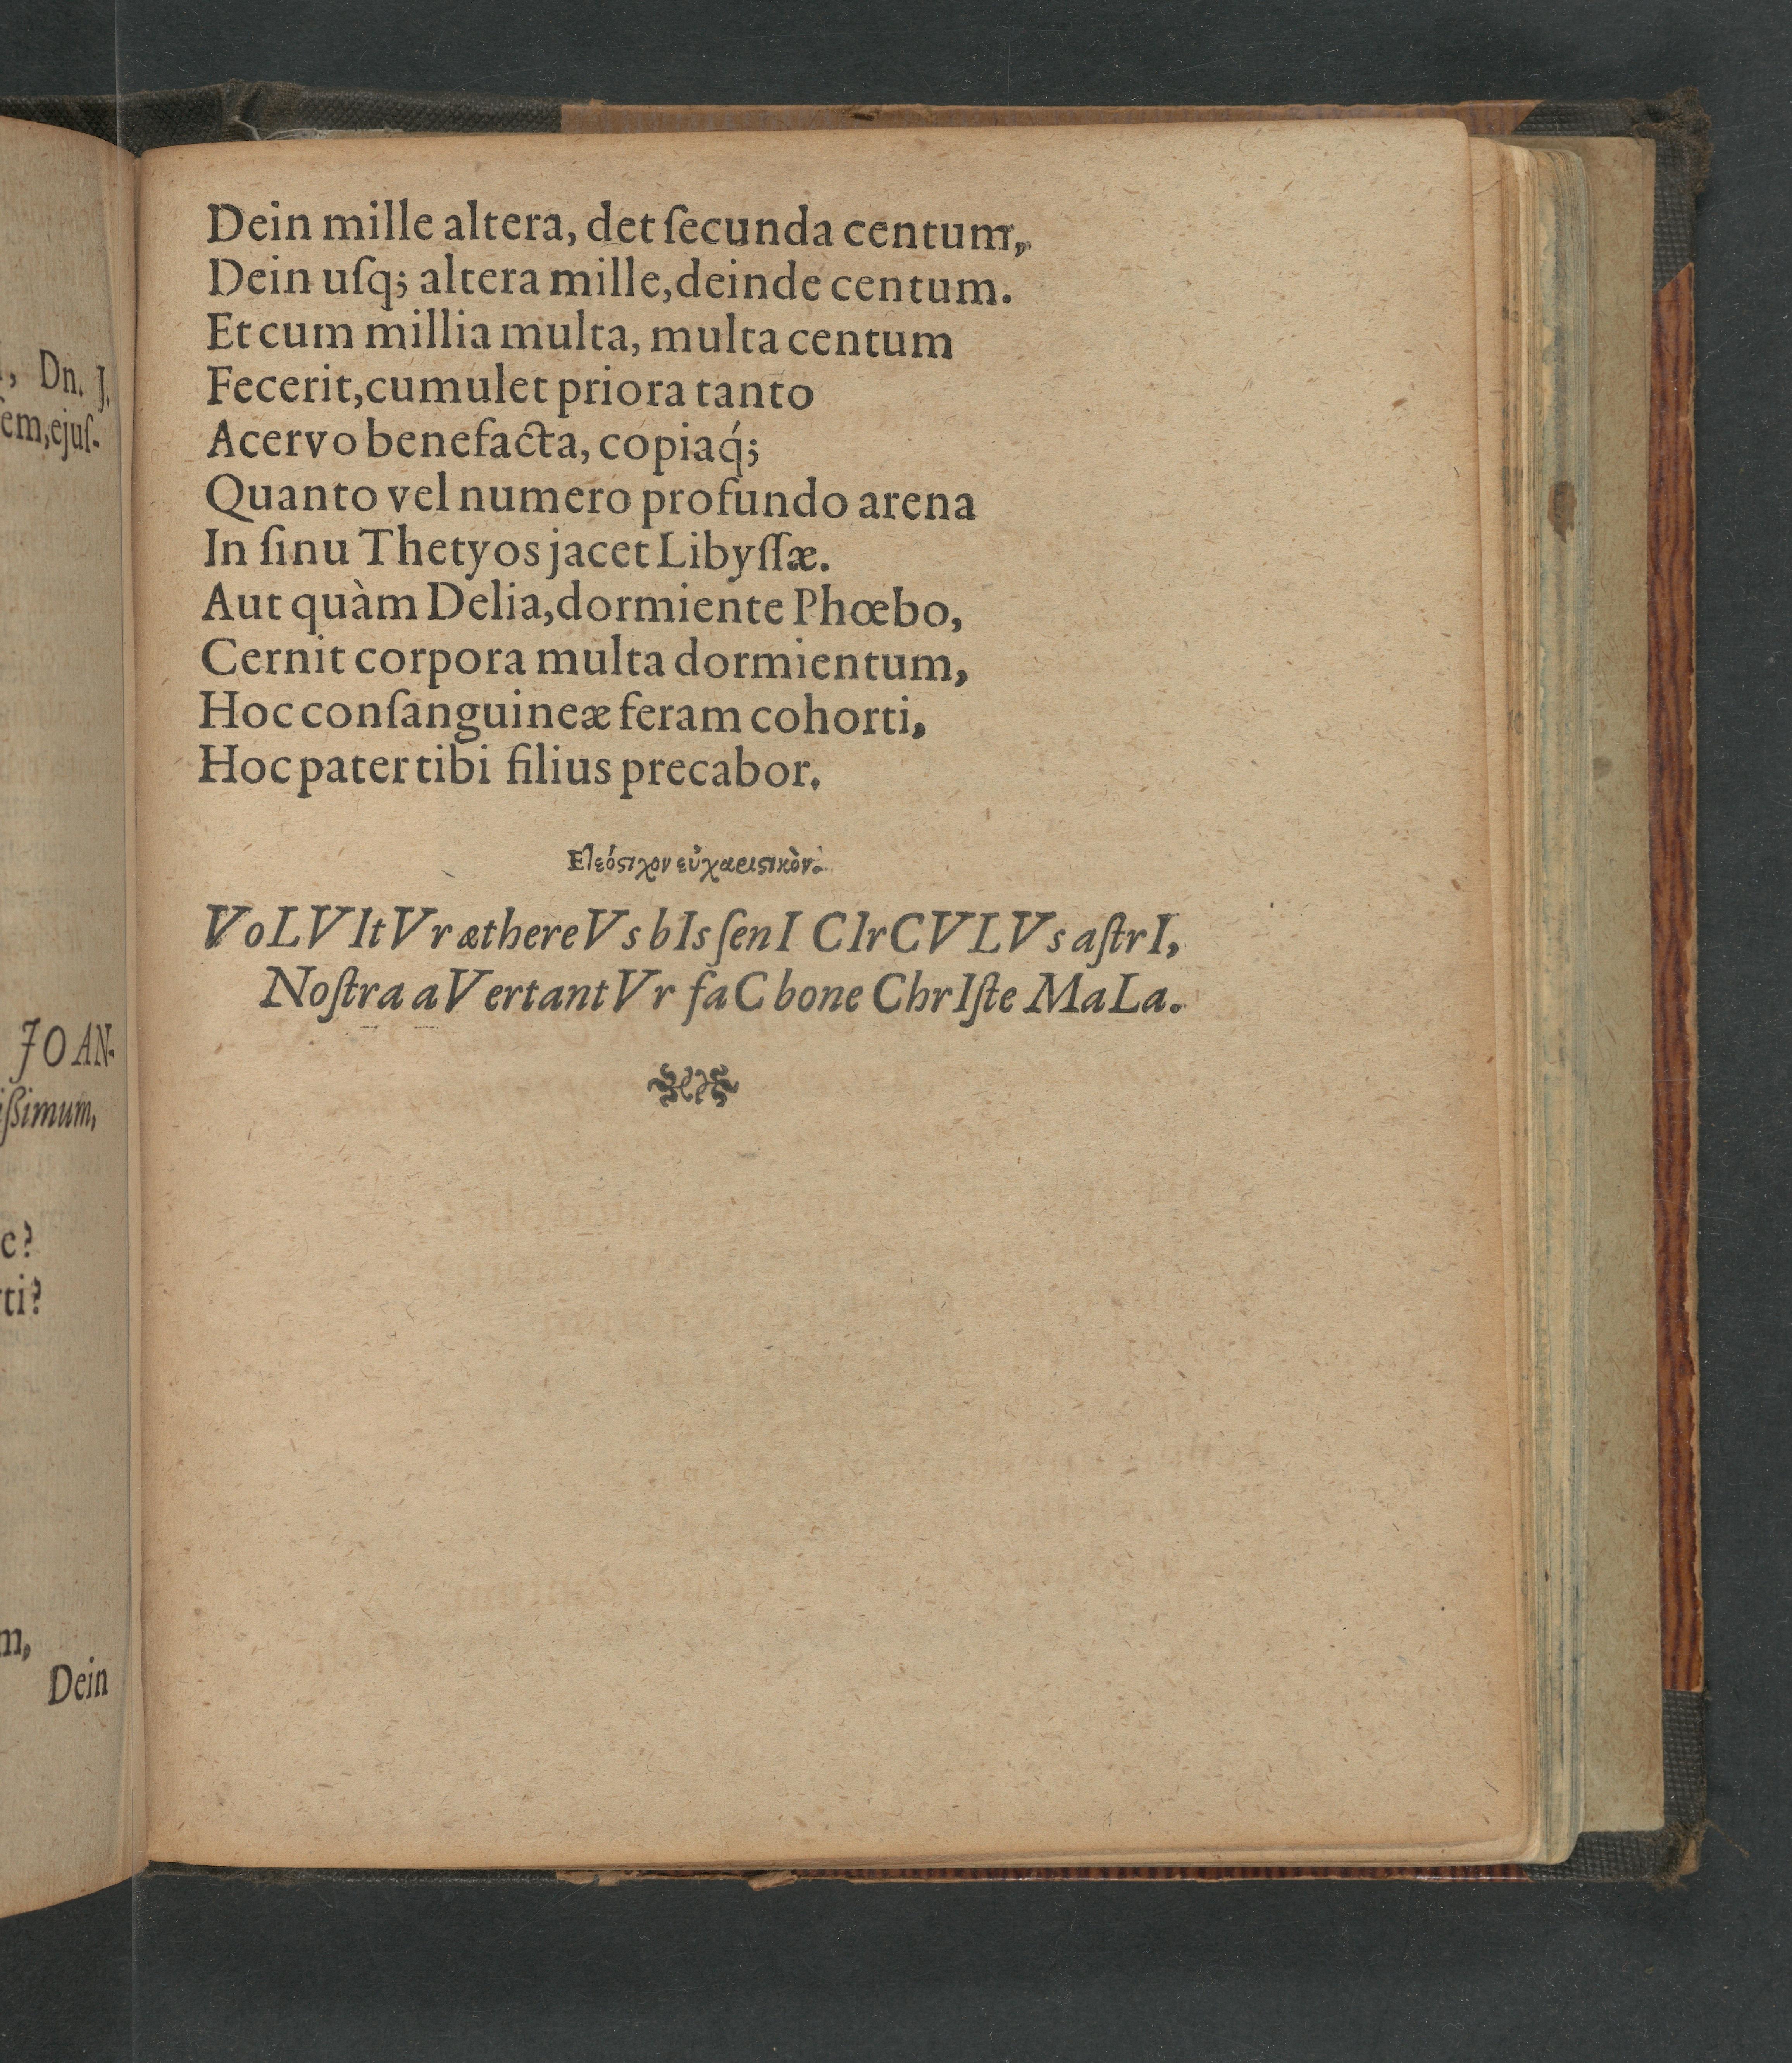 , Dn. J.
em, ejuſ-
JOAN-
ißimum,
e?
ti?
m,
Dein
Dein mille altera, det ſecunda centum,
Dein uſq; altera mille, deinde centum.
Et cum millia multa, multa centum
Fecerit, cumulet priora tanto
Acervo benefacta, copiaq́;
Quanto vel numero profundo arena
In ſinu Thetyos jacet Libyſſæ.
Aut quàm Delia, dormiente Phœbo,
Cernit corpora multa dormientum,
Hoc conſanguineæ feram cohorti,
Hoc pater tibi filius precabor.
εὐχαριστικὸν.
VoLVItVr æthereVs bIs ſenI CIrCVLVs aſtrI,
Noſtra aVertantVr faC bone ChrIſte MaLa.